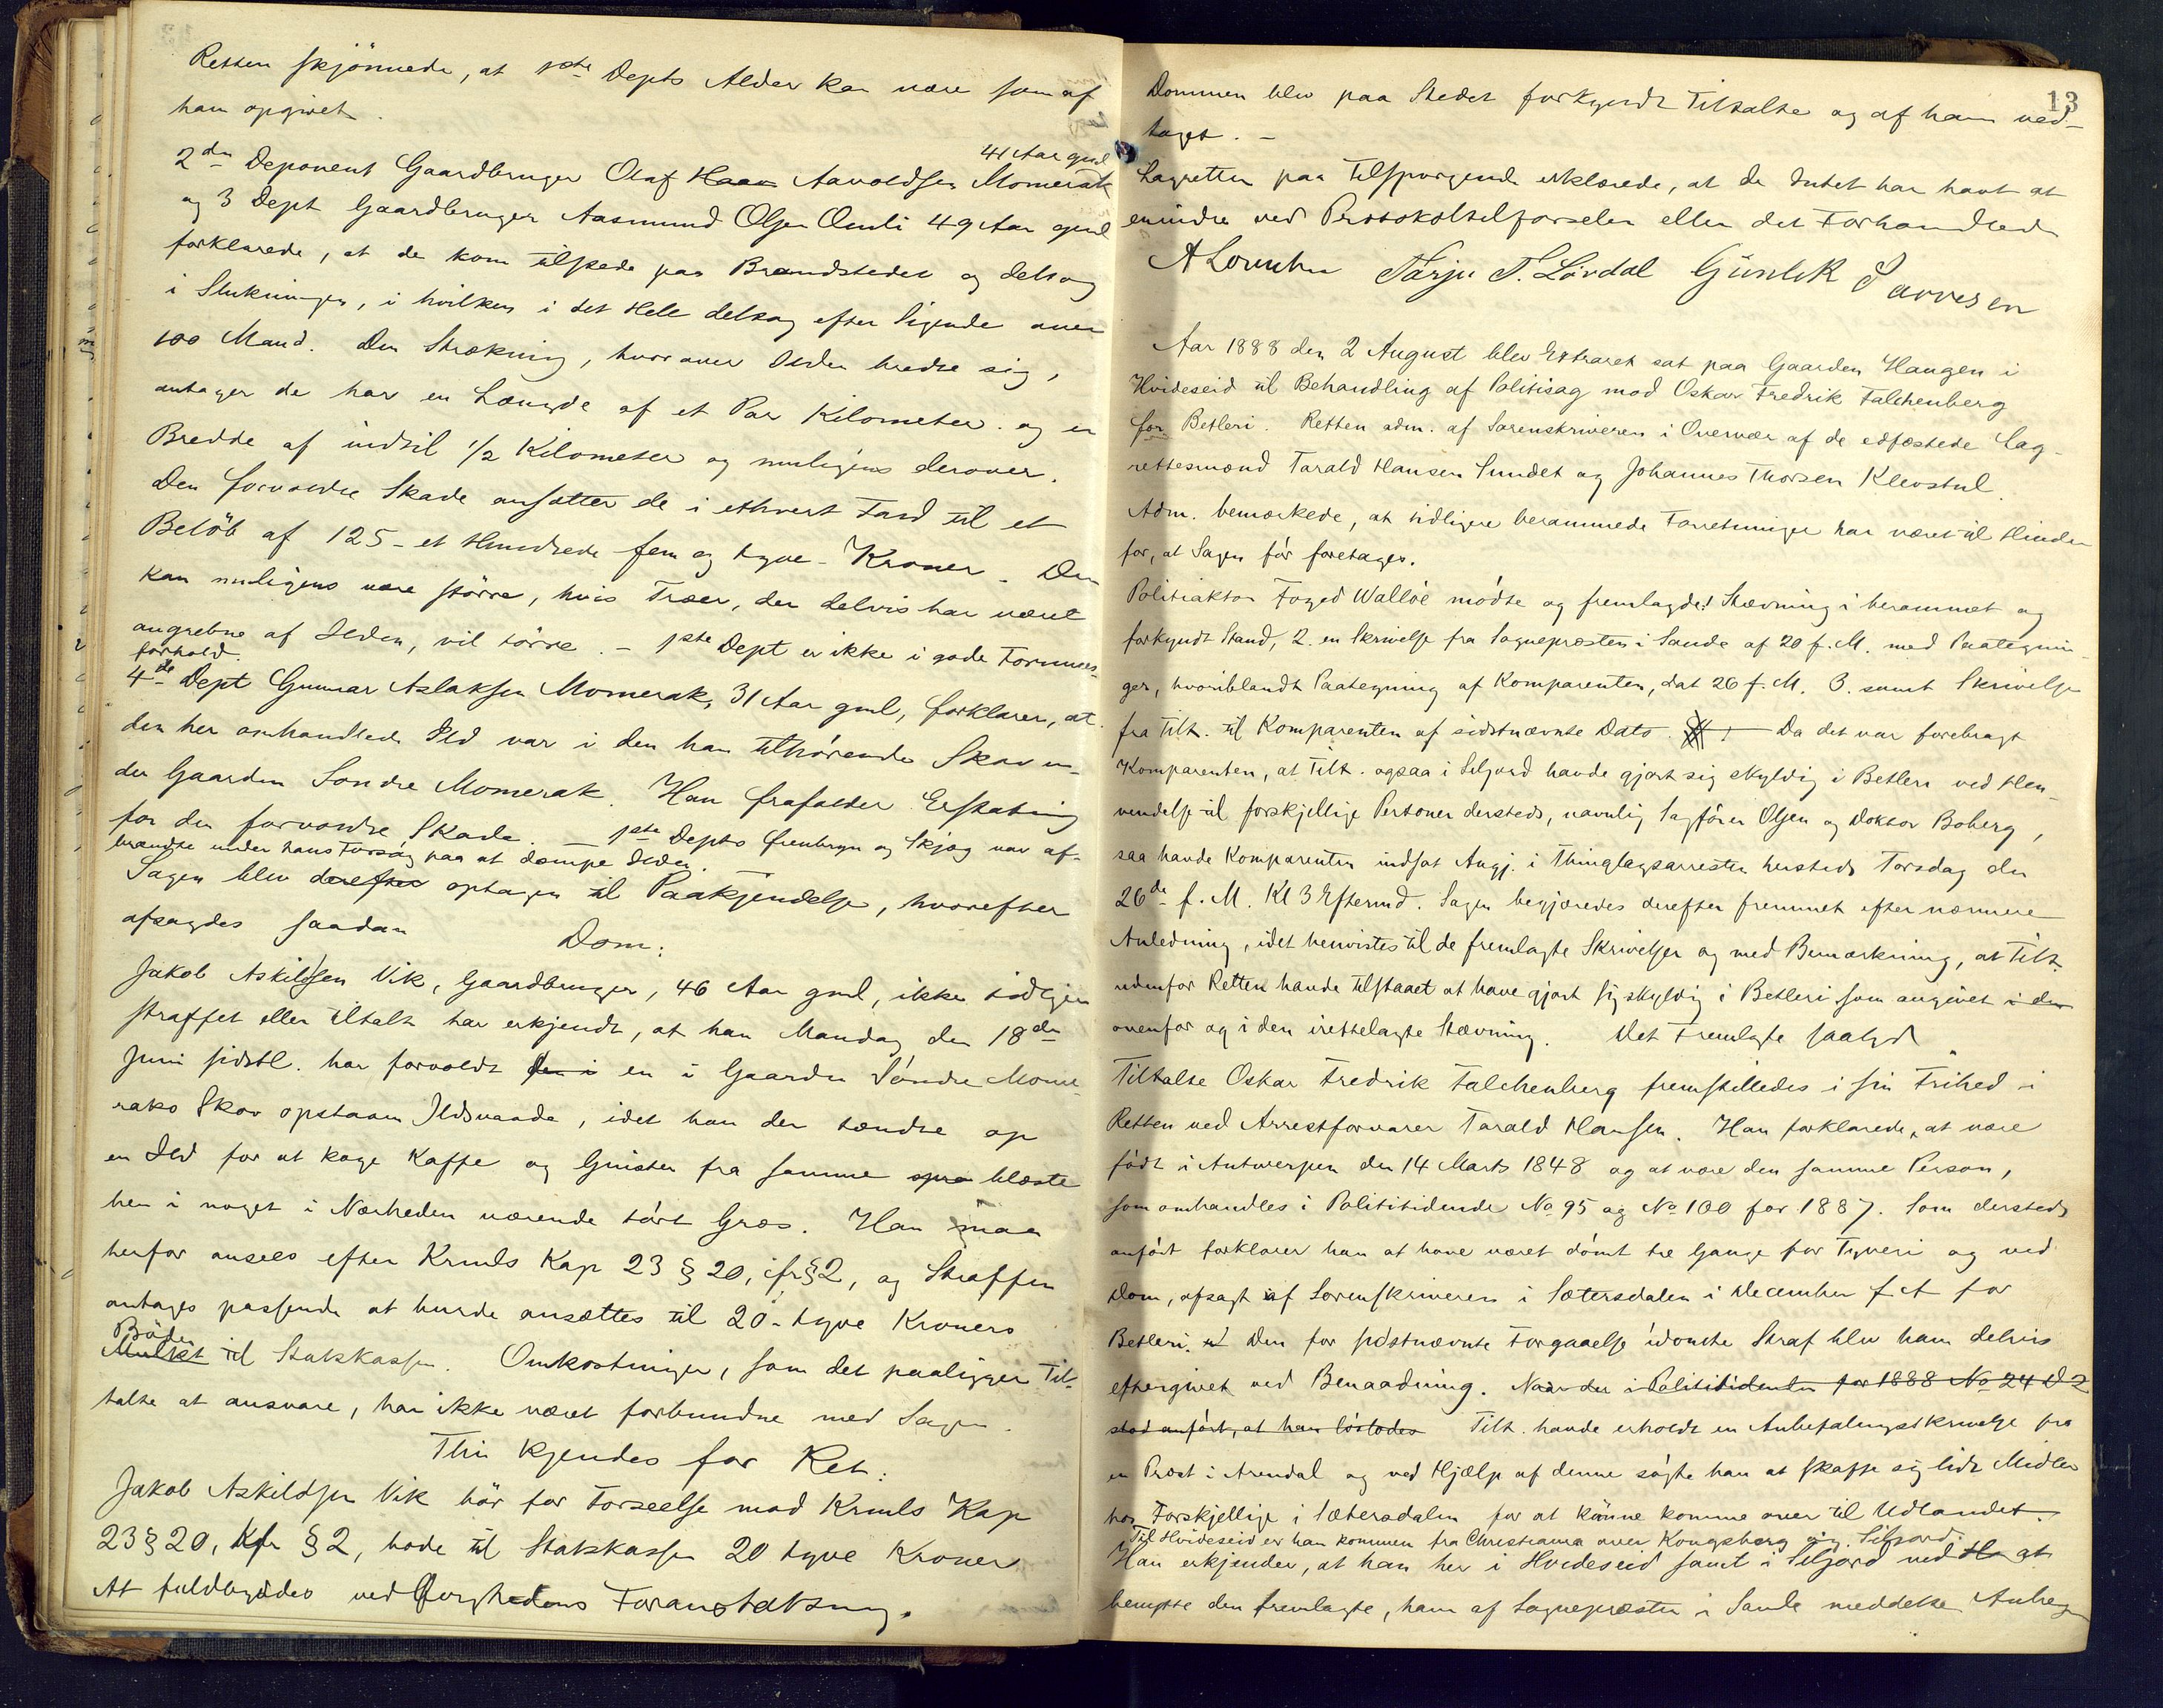 Retten skjönnede, at 1ste Depts Alder kan være som af
ham opgivet.
41 Aar gml
2den Deponent Gaardbruger Olaf Haav Aavoldsen Momerak
og 3 Dept Gaardbruger Aasmund Olsen Omli 49 Aar gml
forklarede, at de kom tilstede paa Brandstedet og deltog
i Slukningen, i hvilken i det Hele deltog efter Sigende over
100 Mand. Den Strækning, hvorover Ilden bredte sig,
antager de har en Længde af et Par Kilometer og en
Bredde af indtil 1/2 Kilometer og muligens derover.
Den forvoldte Skade ansætter de i ethvert Fald til et
Belöb af 125 - et Hundrede fem og tyve - Kroner. Den
kan muligens være större, hvis Træer, der delvis har været
angrebne af Ilden, vil törre. - 1ste Dept er ikke i gode Formues-
forhold.
4de Dept Gunnar Aslaksen Momerak, 31 Aar gml, forklarer, at
den her omhandlede Ild var i den ham tilhörende Skov un-
der Gaarden Söndre Momerak. Han frafalder Erstatning
for den forvoldte Skade. - 1ste Depts Öienbryn og Skjæg var af-
brændte under hans Forsög paa at dæmpe Ilden.
Sagen blev derefter optagen til Paakjendelse, hvorefter
afsagdes saadan
Dom:
Jakob Askildsen Vik, Gaardbruger, 46 Aar gml, ikke tidligere
straffet eller tiltalt har erkjendt, at han Mandag den 18de
Juni sidstl. har forvoldt den i en i Gaarden Söndre Mome-
raks Skov opstaaen Ildsvaade, idet han der tændte op
en Ild for at koge Kaffe og Gnister fra samme spra blæste
hen i noget i Nærheden værende tört Græs. Han maa
herfor ansees efter Krmls Kap 23 § 20, cfr § 2, og Straffen
antages passende at burde ansættes til 20 - tyve Kroners
Böder
Mulkt til Statskassen. Omkostninger, som det paaligger Til-
talte at ansvare, har ikke været forbundne med Sagen.
Thi kjendes for Ret:
Jakob Askildsen Vik bör for Forseelse mod Krmls Kap
23 § 20, kfr § 2, bøde til Statskassen 20 tyve Kroner
At fuldbyrdes ved Övrighedens Foranstaltning.
13
Dommen blev paa Stedet forkyndt Tiltalte og af ham ved-
taget. -
Lagretten paa Tilspørgende erklærede, at de Intet har havt at
erindre ved Protokoltilførselen eller det Forhandlede
A Lovenha Tarje T. Lövdal Gunlek Tarresen
Aar 1888 den 2 August blev Extraret sat paa Gaarden Haugen i
Hvideseid til Behandling af Politisag mod Oskar Fredrik Falchenberg
for Betleri. Retten adm. af Sorenskriveren i Overvær af de edfæstede Lag-
rettesmænd Tarald Hansen Sundet og Johannes Thorsen Klevstul.
Adm. bemærkede, at tidligere berammede Forretninger har været til Hinder
for, at Sagen för foretages.
Politiaktor Foged Wallöe mödte og fremlagde 1 Stævning i berammet og
forkyndt Stand, 2. en Skrivelse fra Sognepræsten i Sande af 20 f. M. med Paategnin-
ger, hvoriblandt Paategning af Komparenten, dat 26 f. M. 3. samt Skrivelse
fra Tilt. til Komparenten af sidstnævnte Dato. Da det var forebragt
Komparenten, at Tilt. ogsaa i Seljord havde gjort sig skyldig i Betleri ved Hen-
vendelse til forskjellige Personer dersteds, navnlig Sagförer Olsen og Doktor Boberg,
saa havde Komparenten indsat Angj. i Thinglagsarresten hersteds Torsdag den
26de f. M. Kl 3 Efterm. Sagen begjæredes derefter fremmet efter nærmere
Anledning, idet henvistes til de fremlagte Skrivelser og med Bemærkning, at Tilt.
udenfor Retten havde tilstaaet at have gjort sig skyldig i Betleri som angivet i den
ovenfor og i den irettelagte Stævning. Det Fremlagte saalyd
Tiltalte Oskar Fredrik Falchenberg fremstilledes i sin Frihed i
Retten ved Arrestforvarer Tarald Hansen. Han forklarede, at være
födt i Antwerpen den 14 Marts 1848 og at være den samme Person,
som omhandles i Polititidende No 95 og No 100 for 1887. Som dersteds
anfört forklarer han at have været dömt tre Gange for Tyveri og ved
Dom, afsagt af Sorenskriveren i Sætersdalen i December f A for
Betleri. Den for sidstnævnte Forgaaelse idömte Straf blev ham delvis
eftergivet ved Benaadning. Naar der i Polititidenden for 1888 No 24 D 2
stod anfört, at han löslodes Tilt. havde erholdt en Anbefalingsskrivelse fra
en Præst i Arendal og ved Hjælp af denne sögte han at skaffe sig lidt Midler
hos Forskjellige i Sætersdalen for at kunne komme over til Udlandet.
Til Hvideseid er han kommen fra Christiania over Kongsberg og Siljord.
Han erkjender, at han her i Hvideseid samt i Seljord ved Ho at
benytte den fremlagte, ham af Sognepræsten i Sande meddelte Anbefa